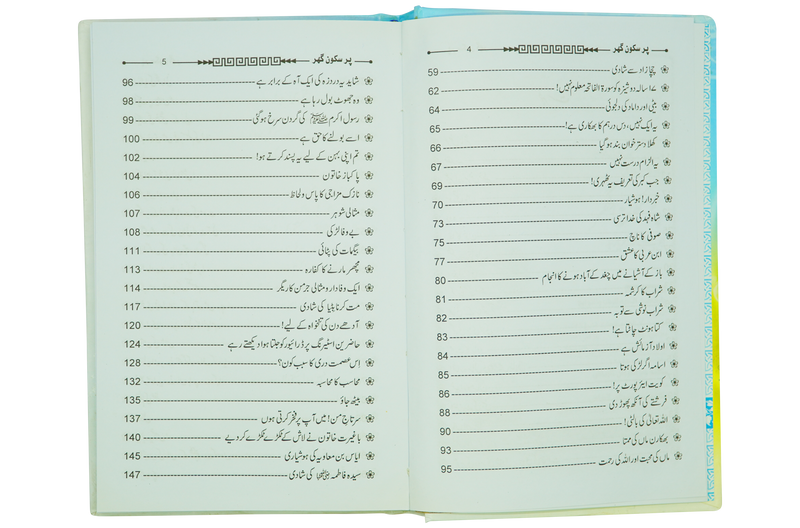 پر سکون گھر 4
چچا زاد سے شادی 59
۱۷ سالہ دوشیزہ کو سورۃ الفاتحہ معلوم نہیں! 62
بیٹی اور داماد کی دلجوئی 64
یہ ایک نہیں، دس درہم کا بھکاری ہے! 65
کھلا دسترخوان بند ہو گیا 66
یہ الزام درست نہیں 67
جب کبر کی تعریف یہ ٹھہری! 69
خبردار! ہوشیار 70
شاہ فہد کی خدا ترسی 73
صوفی کا ناچ 75
ابن عربی کا عشق 77
باز کے آشیانے میں چغد کے آباد ہونے کا انجام 80
شراب کا کرشمہ 81
شراب نوشی سے توبہ 82
کتا ہونٹ چاٹتا ہے! 83
اولاد آزمائش ہے 84
اسامہ اگر لڑکی ہوتا 85
کویت ایئر پورٹ پر! 86
فرشتے کی آنکھ پھوڑ دی 88
اللہ تعالیٰ کی بالٹی! 90
بھکارن ماں کی ممتا 93
ماں کی محبت اور اللہ کی رحمت 95
پر سکون گھر 5
شاید یہ دردزہ کی ایک آہ کے برابر ہے 96
وہ جھوٹ بول رہا ہے 98
رسول اکرم ﷺ کی گردن سرخ ہو گئی 99
اسے بولنے کا حق ہے 100
تم اپنی بہن کے لیے یہ پسند کرتے ہو! 102
پاکباز خاتون 104
نازک مزاجی کا پاس و لحاظ 106
مثالی شوہر 107
بے وفا لڑکی 108
بیگمات کی پٹائی 111
مچھر مارنے کا کفارہ 113
ایک وفادار و مثالی جرمن کاریگر 114
مت کرنا بٹیا کی شادی 117
آدھے دن کی تنخواہ کے لیے! 120
حاضرین اسٹیرنگ پر ڈرائیور کو جلتا ہوا دیکھتے رہے 124
اس عصمت دری کا سبب کون؟ 128
محاسب کا محاسبہ 132
بیٹھ جاؤ 135
سرتاج من! میں آپ پر فخر کرتی ہوں 137
باغیرت خاتون نے لاش کے ٹکڑے ٹکڑے کر دیے 140
ایاس بن معاویہ کی ہوشیاری 145
سیدہ فاطمہ کی شادی 147